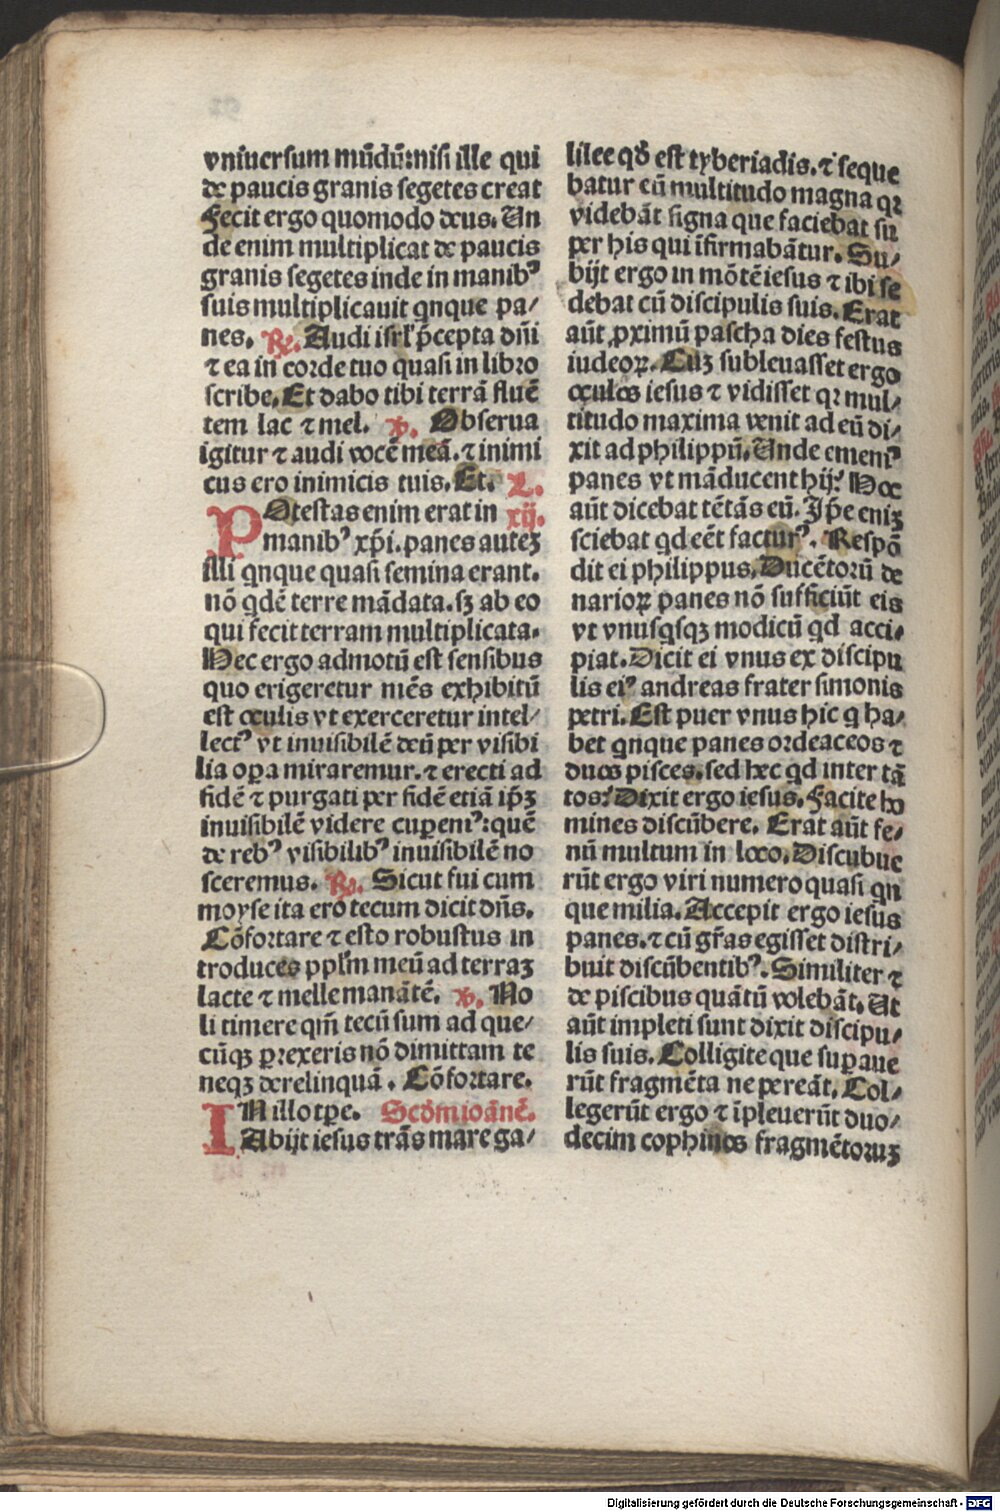 vniuersum mūdū:nisi ille qui
de paucis granis segetes creat
Fecit ergo quomodo deus. Un
de enim multiplicat de paucis
granis segetes inde in manibꝰ
suis multiplicauit qnque pa⸗
nes. ℟. Audi isrl' p̄cepta dn̄i
⁊ ea in corde tuo quasi in libro
scribe. Et dabo tibi terrā fluē
tem lac ⁊ mel. ℣. Obserua
igitur ⁊ audi vocē meā. ⁊ inimi
cus ero inimicis tuis. Et. L.
POtestas enim erat in xij.
manibꝰ xp̄i. panes auteꝫ
illi qnque quasi semina erant.
nō qdē terre mādata. sꝫ ab eo
qui fecit terram multiplicata.
Hec ergo admotū est sensibus
quo erigeretur mēs exhibitū
est oculis vt exerceretur intel⸗
lectꝰ vt inuisibilē deū per visibi
lia oꝑa miraremur. ⁊ erecti ad
fidē ⁊ purgati per fidē etiā ip̄ꝫ
inuisibilē videre cuꝑemꝰ: quē
de rebꝰ visibilibꝰ inuisibilē no
sceremus. ℟. Sicut fui cum
moyse ita ero tecum dicit dn̄s.
Cōfortare ⁊ esto robustus in
troduces ppl'm meū ad terraꝫ
lacte ⁊ melle manātē. ℣. No
li timere qm̄ tecū sum ad que⸗
cūqꝫ ꝑrexeris nō dimittam te
neqꝫ derelinquā. Cōfortare.
IN illo tꝑe. Scd̄m ioānē.
Abijt iesus trās mare ga⸗
lilee qd̄ est tyberiadis. ⁊ seque
batur eū multitudo magna qꝛ
videbāt signa que faciebat su
per his qui īfirmabātur. Su⸗
bijt ergo in mōtē iesus ⁊ ibi se
debat cū discipulis suis. Erat
aūt ꝓximū pascha dies festus
iudeoꝝ. Cuꝫ subleuasset ergo
oculos iesus ⁊ vidisset qꝛ mul⸗
titudo maxima venit ad eū di⸗
xit ad philippū. Unde ememꝰ
panes vt māducent hij? Hoc
aūt dicebat tētās eū. Ip̄e eniꝫ
sciebat qd eēt facturꝰ. Respō
dit ei philippus. Ducētorū de
narioꝝ panes nō sufficiūt eis
vt vnusqsqꝫ modicū qd acci⸗
piat. Dicit ei vnus ex discipu
lis eiꝰ andreas frater simonis
petri. Est puer vnus hic q ha⸗
bet qnque panes ordeaceos ⁊
duos pisces. sed hec qd inter tā
tos? Dixit ergo iesus. Facite ho
mines discūbere. Erat aūt fe⸗
nū multum in loco. Discubue
rūt ergo viri numero quasi qn
que milia. Accepit ergo iesus
panes. ⁊ cū gr̄as egisset distri⸗
buit discūbentibꝰ. Similiter ⁊
de piscibus quātū volebāt. Ut
aūt impleti sunt dixit discipu⸗
lis suis. Colligite que suꝑaue
rūt fragmēta ne pereāt. Col⸗
legerūt ergo ⁊ īpleuerūt duo⸗
decim cophinos fragmētoruꝫ
Digitalisierung gefördert durch die Deutsche Forschungsgemeinschaft - DFG